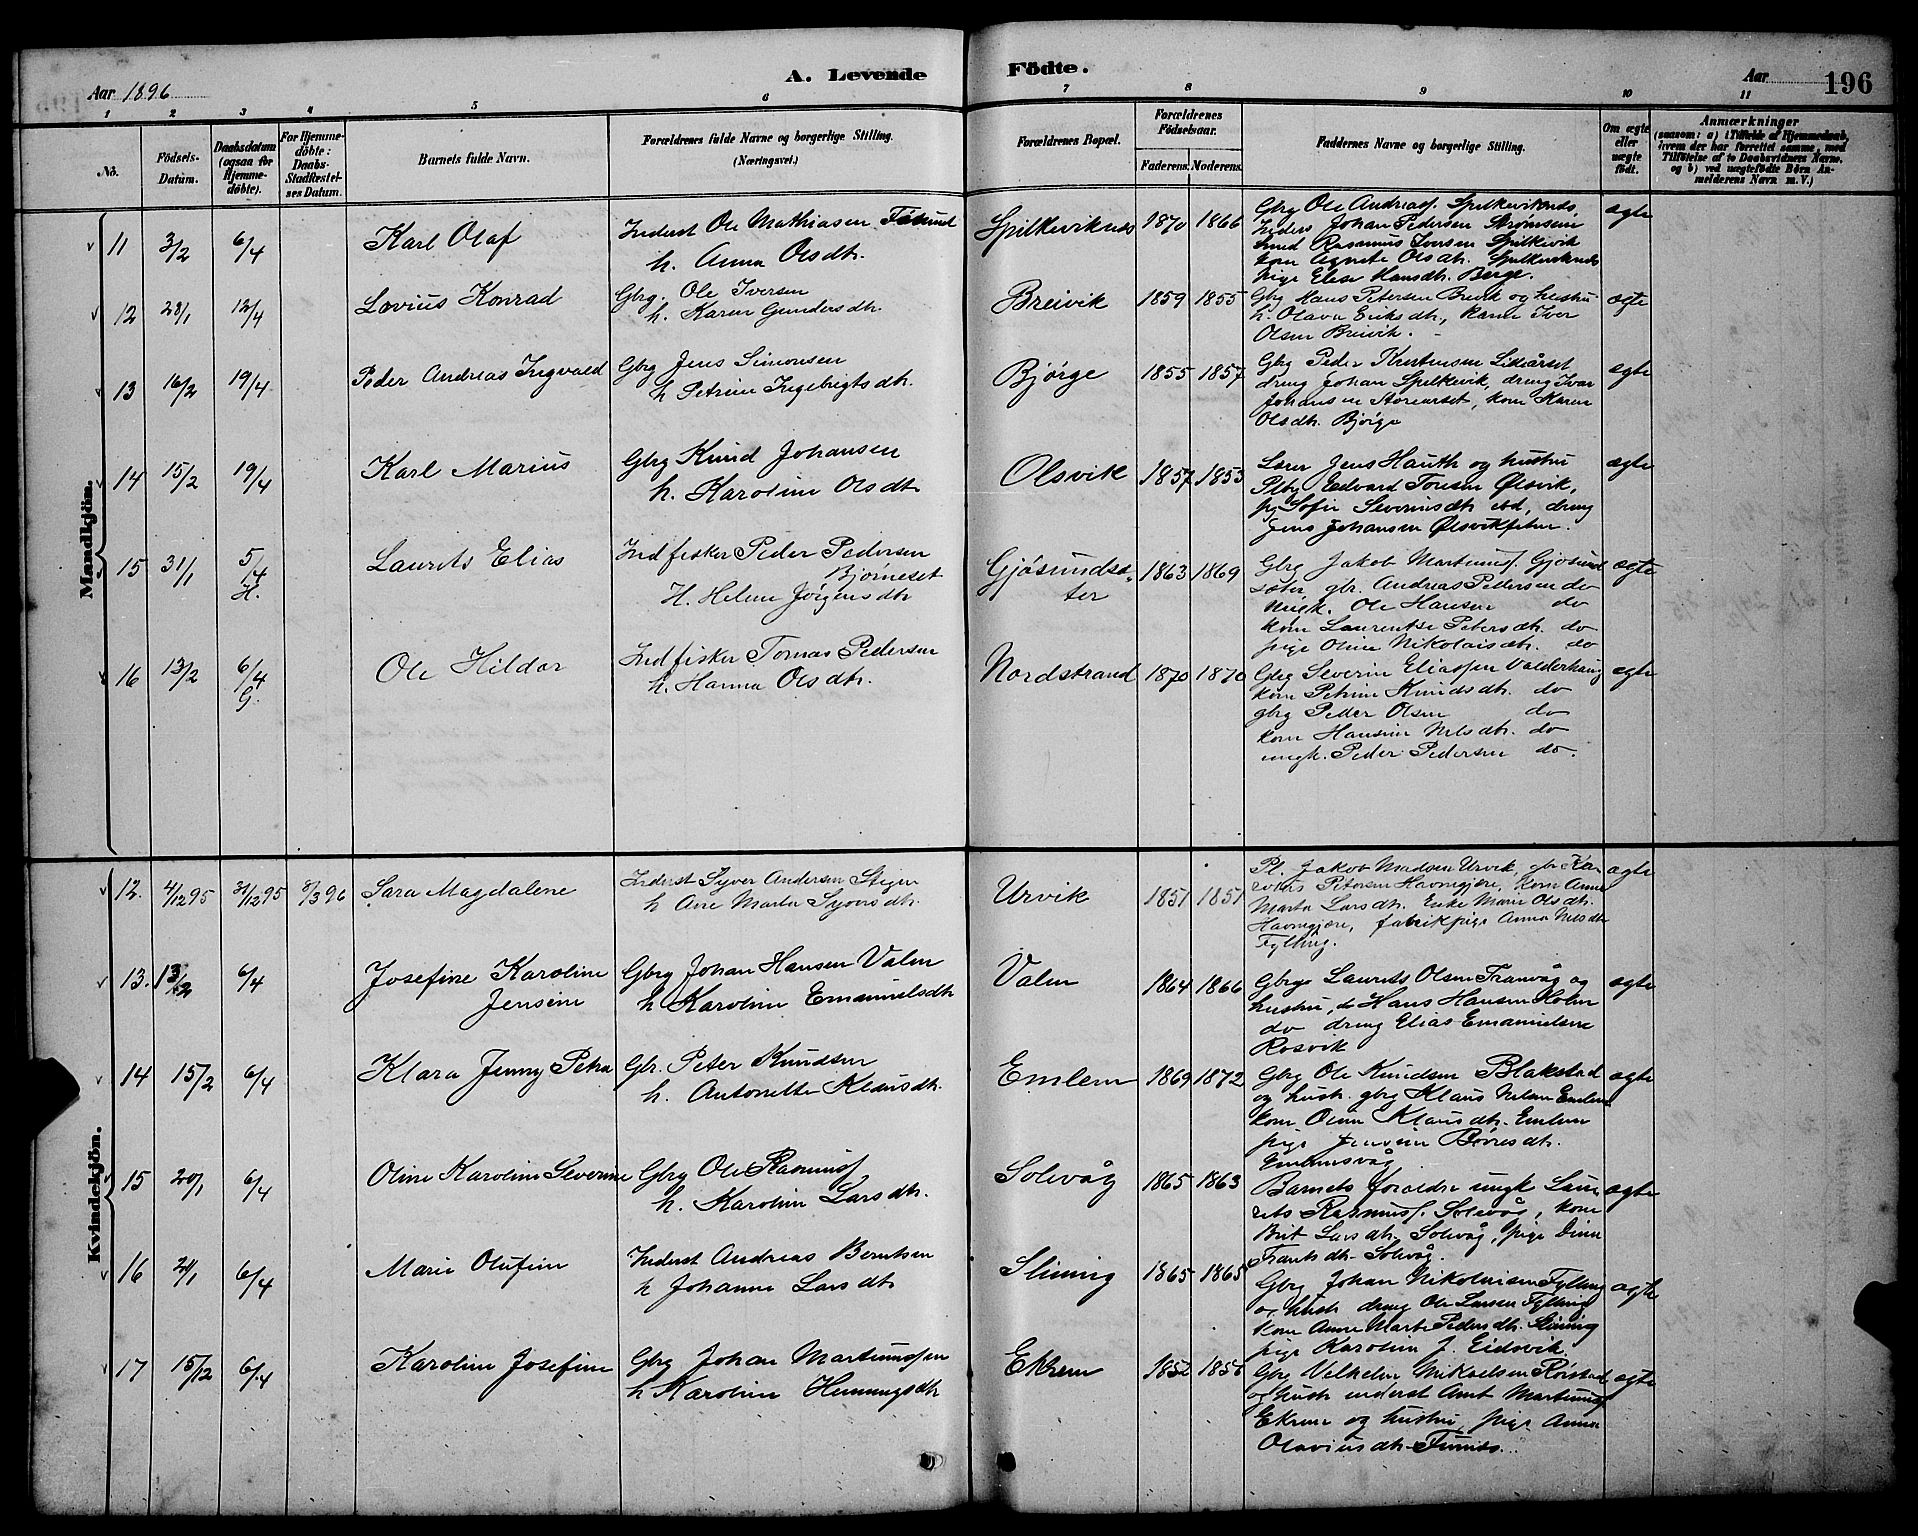 A. Levende Födte.
Aar 1896
Aar 196
1 2 3 4 5 6 7 8 9 10 11
No.
Födsels-Datum.
Daabsdatum (ogsaa for Hjemmedöbte).
For Hjemmedöbte: Daabs-Stadfæstelses Datum.
Barnets fulde Navn.
Forældrenes fulde Navne og borgerlige Stilling.
(Næringsvei.)
Forældrenes Bopæl.
Forældrenes Födselsaar.
Faderens. Moderens.
Faddernes Navne og borgerlige Stilling.
Om ægte eller uægte födt.
Anmærkninger
(saasom: a) i Tilfælde af Hjemmedaab, hvem der har forrettet samme, med Tilföielse af to Daabsvidners Navne, og b) ved uægtefödte Börn Anmelderens Navn m. V.)
Mandkjön.
11 3/2 6/4 Karl Olaf
Inderst Ole Mathiasen
h. Anna Olsdtr.
Spilkeviknes 1870 1866
Gbrg Ole Andreass. Spilkeviknes,
Inders Johan Pedersen
Rasmus Iversen Spilkevik
kone Agnete Olsdtr. Spilkeviknes
pige Elise Hansdtr. Berge.
ægte
12 28/1 12/4 Lovius Konrad
Gbrg. Ole Iversen
h. Karen Gundersdtr.
Breivik 1859 1855
Gbrg Hans Petersen Breivik og hustru
h. Olava Eriksdtr., Iver
Olsen Breivik.
ægte
13 16/2 19/4 Peder Andreas Ingvald
Gbrg Jens Simonsen
h Petrine Ingebrigtsdtr.
Bjørge 1855 1857
Gbrg Peder
dreng Johan Spilkevik, dreng Ivar
Johansen, kone Karen
Olsdtr. Bjørge
ægte
14 15/2 19/4 Karl Marius
Gbrg Knud Johansen
h. Karoline Olsdtr
Olsvik 1857 1853
Lærer Jens Hauth og hustru
Edvard Toresen Ølsvik,
pg Sofie Severinsdtr ibd, dreng
Jens Johansen
ægte
15 31/1 5/4 H. Laurits Elias
Ind fisker Peder Pedersen
Bjørneset
H. Helene Jørgensdtr
Gjøsundsæter 1863 1869
Gbrg Jakob Martinuss. Gjøsund
sæter, gbr. Andreas Pedersen do
ungk. Ole Hansen do
kone Laurentse Petersdtr. do
pige Oline Nikolaisdtr. do
ægte
16 13/2 6/4 G. Ole Hildor
Ind fisker Tomas Pedersen
h. Hanna Olsdtr.
Nordstrand 1870 1870
Gbrg Severin Eliassen Valderhaug
kone Petrine Knudsdtr. do
gbrg Peder Olsen do
kone Hansine Nilsdtr. do
ungk. Peder Pedersen do.
ægte
Kvindekjön.
12. 4/12 95 31/12 95 8/3 96 Sara Magdalene
Inderst Syver Andersen
h Ane Marta Syversdtr.
Urvik 1851 1851
Pl. Jakob Madsen Urvik, gbr
Petersen Havnegjære, kone Anne
Marta Larsdtr. Enke Marie Olsdtr.
Havnegjære, fabrikpige Anna Nilsdtr
Fylling.
ægte
13. 13/2 6/4 Josefine Karoline
Jensine
Gbrg Johan Hansen Valen
h. Karoline Emanuelsdtr
Valen 1864 1866
Gbrge Laurits Olsen Tranvåg og
hustru, do Hans Hansen Holen
do dreng Elias Emanuelsen
Rosvik
ægte
14 15/2 6/4 Klara Jenny Petra
Gbr. Peter Knudsen
h. Antonette Klausdtr.
Emlem 1869 1872
Gbrg Ole Knudsen Blakstad
og hustr. gbrg Klaus Nilsen Emlem
kone Oline Klausdtr. Emlem
pige Jensine Børresdtr.
Emlemsvåg
ægte
15 20/1 6/4 Oline Karoline Severine
Gbrg Ole Rasmuss
h. Karoline Larsdtr.
Solevåg 1865 1863
Barnets foreldre ungk Lau
rits Rasmuss. Solevåg, kone
Brit Larsdtr. Solevåg, pige Dina
Frantsdtr. Solevåg.
ægte
16 21/1 6/4 Marie Olufine
Inderst Andreas Berntsen
h Johanne Larsdtr
Slinning 1865 1865
Gbrg Johan Nikolaisen Fylling
og hustr dreng Ole Larsen Fylling
kone Anne Marte Pedersdtr. Slinning
pige Karoline J. Eidsvik.
ægte
17 15/12 6/4 Karoline Josefine
Gbrg Johan Martinussen
h Karoline Henningsdtr
Ekrem 1852 1856
Gbrg Velhelm Mikaelsen Rørstad
og hustr inderst Amt Martinus
Ekrem og hustru, pige Anna
Olaviusdtr.
ægte